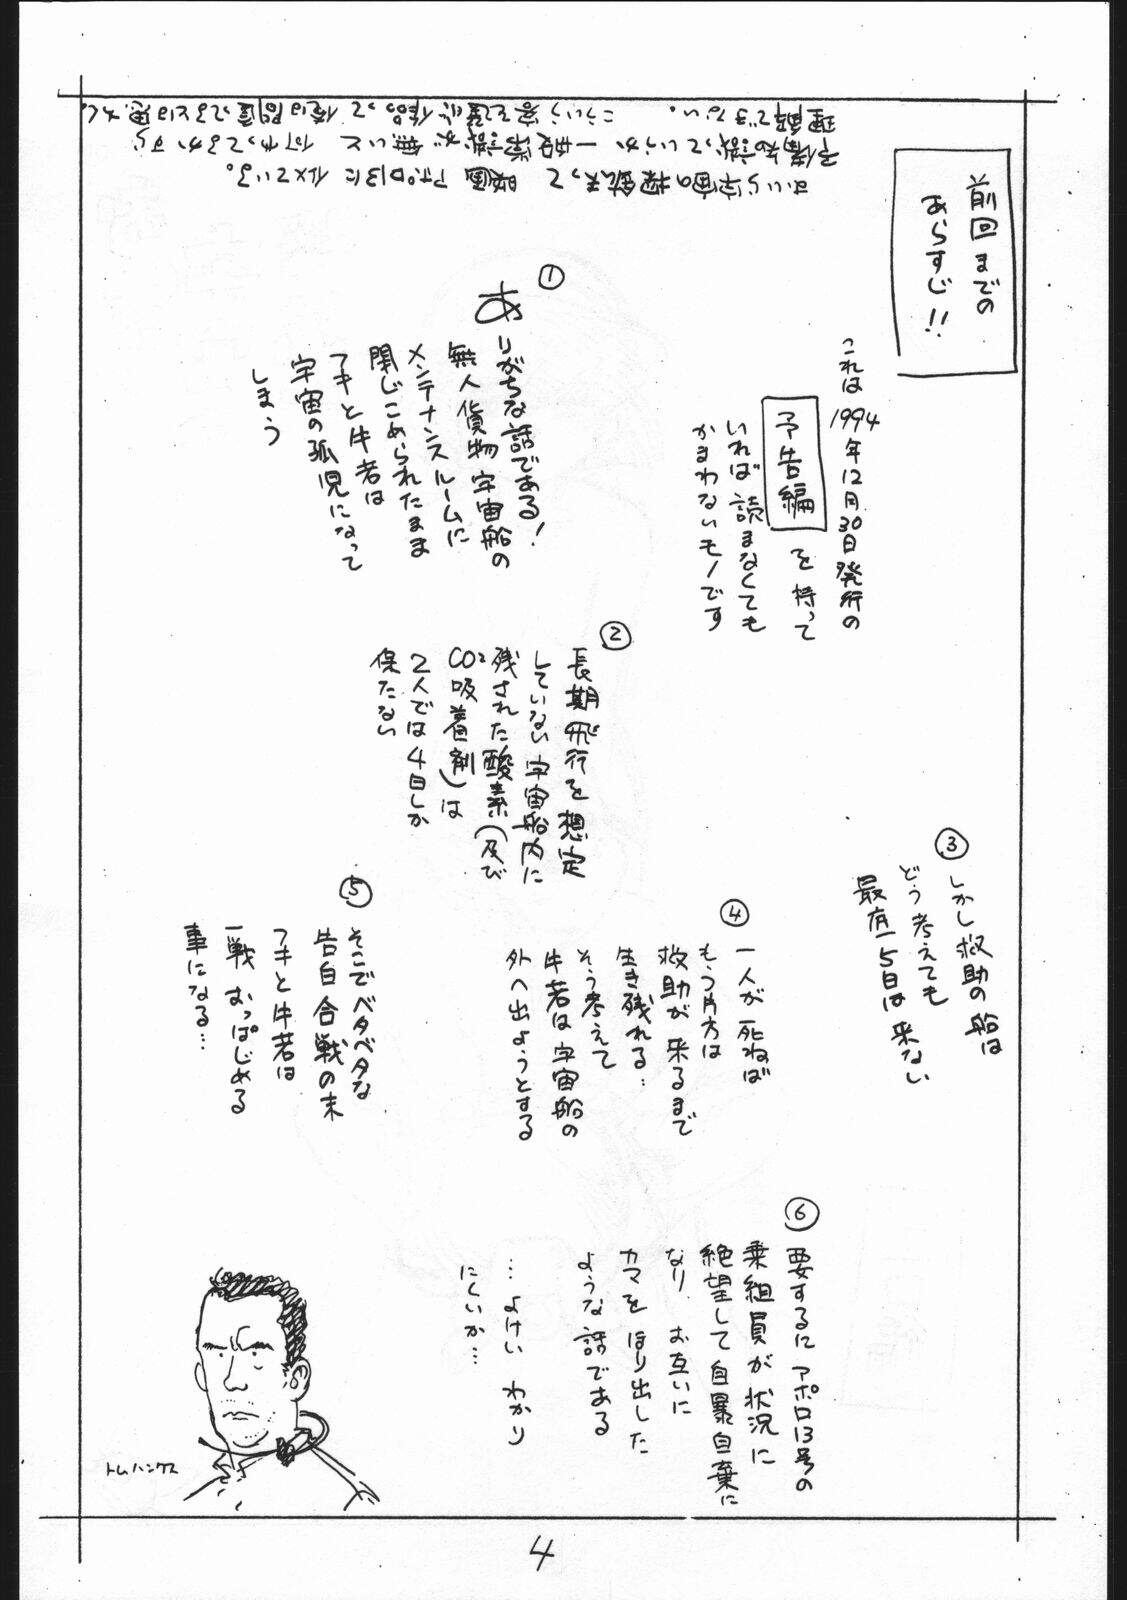 前回までの
あらすじ!!
これは1994年12月30日発行の
予告編を持って
いれば読まなくても
かまわないモノです
①
ありがちな話である!
無人貨物宇宙船の
メンテナンスルームに
閉じこめられたまま
フキと牛若は
宇宙の孤児になって
しまう
②
長期飛行を想定
していない宇宙船内に
残された酸素(及び
CO2吸着剤)は
2人では4日しか
保たない
③
しかし救助の船は
どう考えても
最底15日は来ない
④
一人が死ねば
もう片方は
救助が来るまで
生き残れる…
そう考えて
牛若は宇宙船の
外へ出ようとする
⑤
そこでベタベタな
告白合戦の末
フキと牛若は
一戦おっぱじめる
事になる…
⑥
要するにアポロ13号の
乗組員が状況に
絶望して自暴自棄に
なり お互いに
カマをほり出した
ような話である
…よけいわかり
にくいか…
トムハンクス
4
宇宙の探飲天って 映画アポロ13に似ている。
予備知識っていうか 一般常識が無いと 何やってるかすら
理解できない。 こういう客を置いて作品って 俺は間違ってるとは思